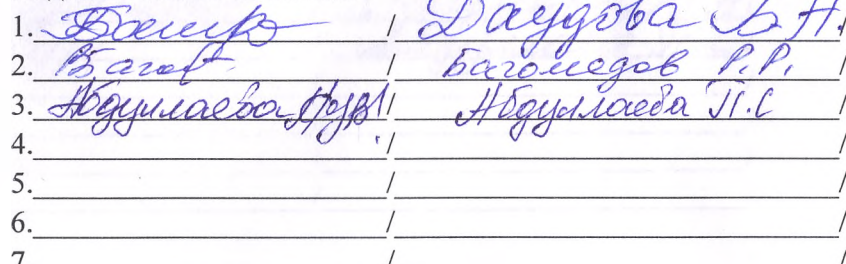 1. / Даудова Б.А./
2. Багов / Багомедов Р.Р. /
3. Абдуллаева / Абдуллаева П.С /
4. / /
5. / /
6. / /
7. / /